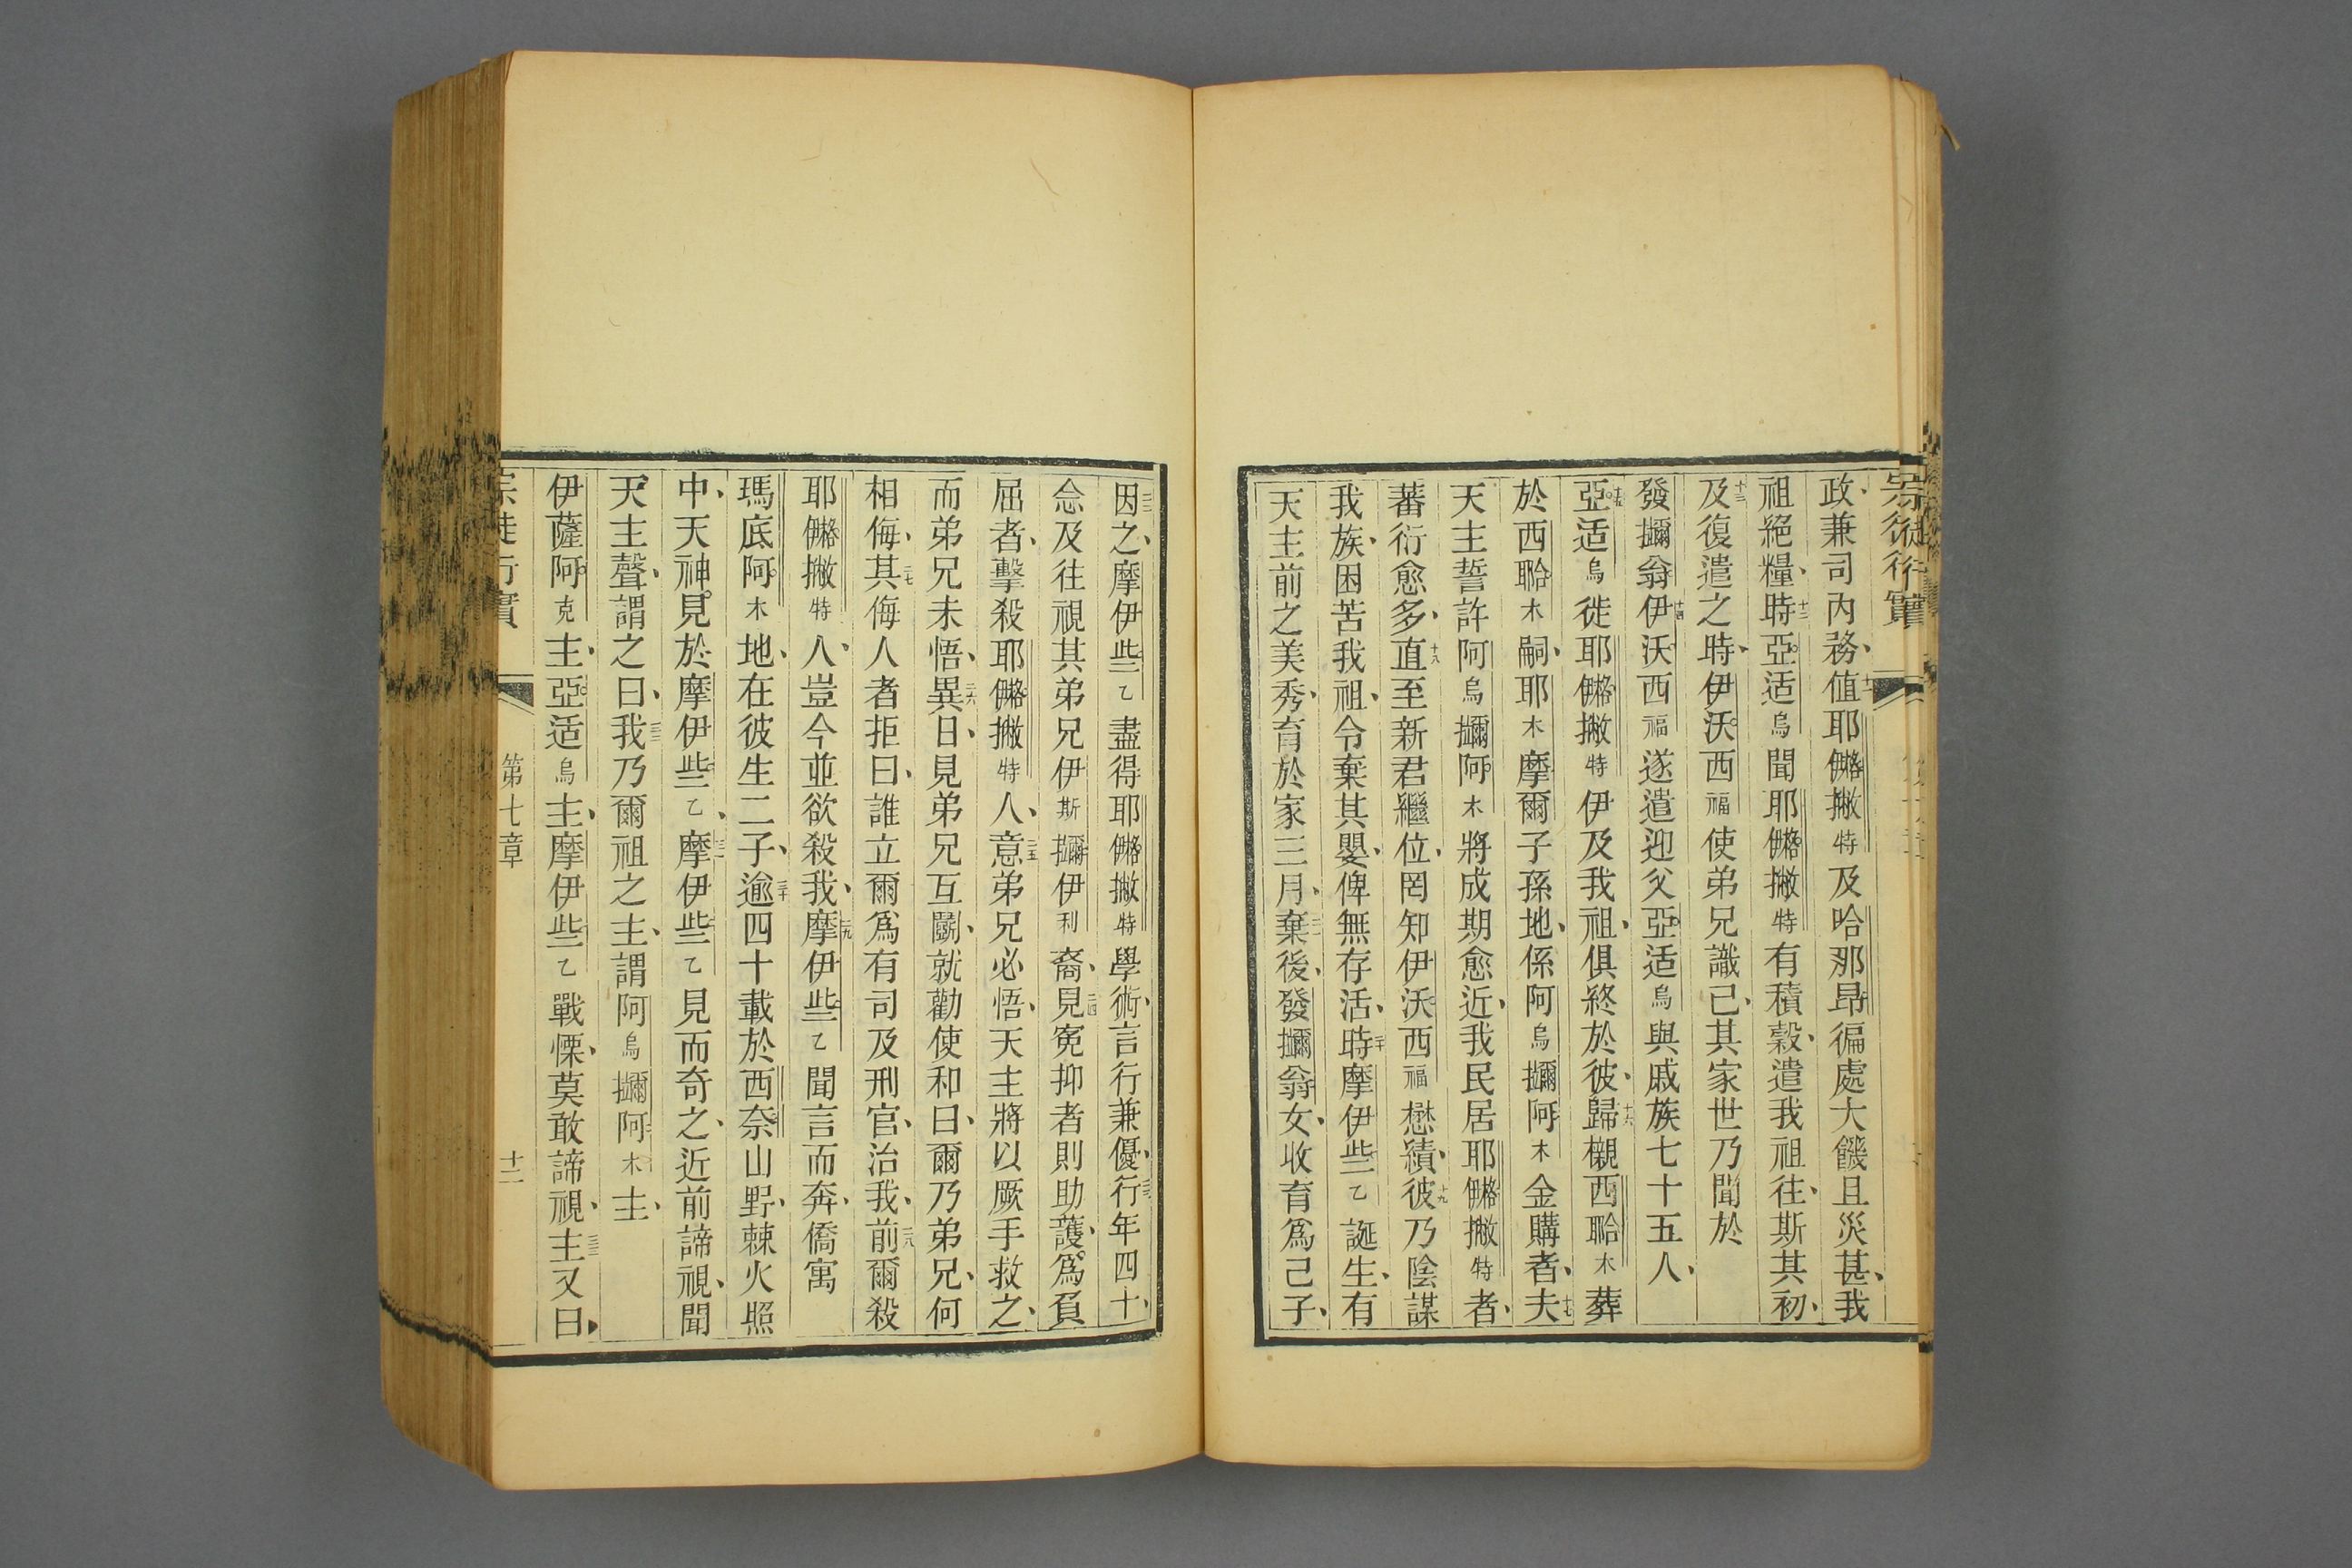 宗徒行實
政、兼司內務、十一値耶𨉖撇特及哈那昻徧處大饑且災甚、我
祖絕糧、十二時亞适烏聞耶撇特有積穀、遣我祖往、斯其初、
十三及復遣之時、伊沃西福使弟兄識己、其家世乃聞於
發攟翁、十四伊沃西福遂遣迎父亞适烏與戚族七十五人、
十五亞适烏徙耶撇特伊及我祖、俱終於彼、十六歸櫬西聆木葬
於西聆木嗣、耶木摩爾子孫地、係阿烏阿木金購者、十七夫
天主誓許阿烏阿木將成期愈近、我民居耶撇特者、
蕃衍愈多、十八直至新君繼位、罔知伊沃西福懋績、十九彼乃陰謀
我族、困苦我祖、令棄其嬰、俾無存活、二十時摩伊些乙誕生、有
天主前之美秀、育於家三月、二一棄後、發翁女、收育爲己子、
二二因之、摩伊些乙盡得耶撇特學術、言行兼優、二三行年四十、
念及往視其弟兄伊斯伊利裔、二四見寃抑者則助護、爲負
屈者、擊殺耶撇特人、二五意弟兄必悟、天主將以厥手救之、
而弟兄未悟、二六異日、見弟兄互鬭、就勸使和、曰、爾乃弟兄、何
相侮、二七其侮人者拒曰、誰立爾爲有司及刑官、治我、二八前爾殺
耶撇特人、豈今並欲殺我、二九摩伊些乙聞言而奔、僑寓
瑪底阿木地、在彼生二子、三十逾四十載於西奈山野、棘火照
中、天神見於摩伊些乙、三一摩伊些乙見而奇之、近前諦視、聞
天主聲、謂之曰、三二我乃爾祖之主、謂阿烏阿木主、
伊薩阿克主、亞适烏主、摩伊些乙戰慄、莫敢諦視、三三主又曰、
宗徒行實
第七章
十二